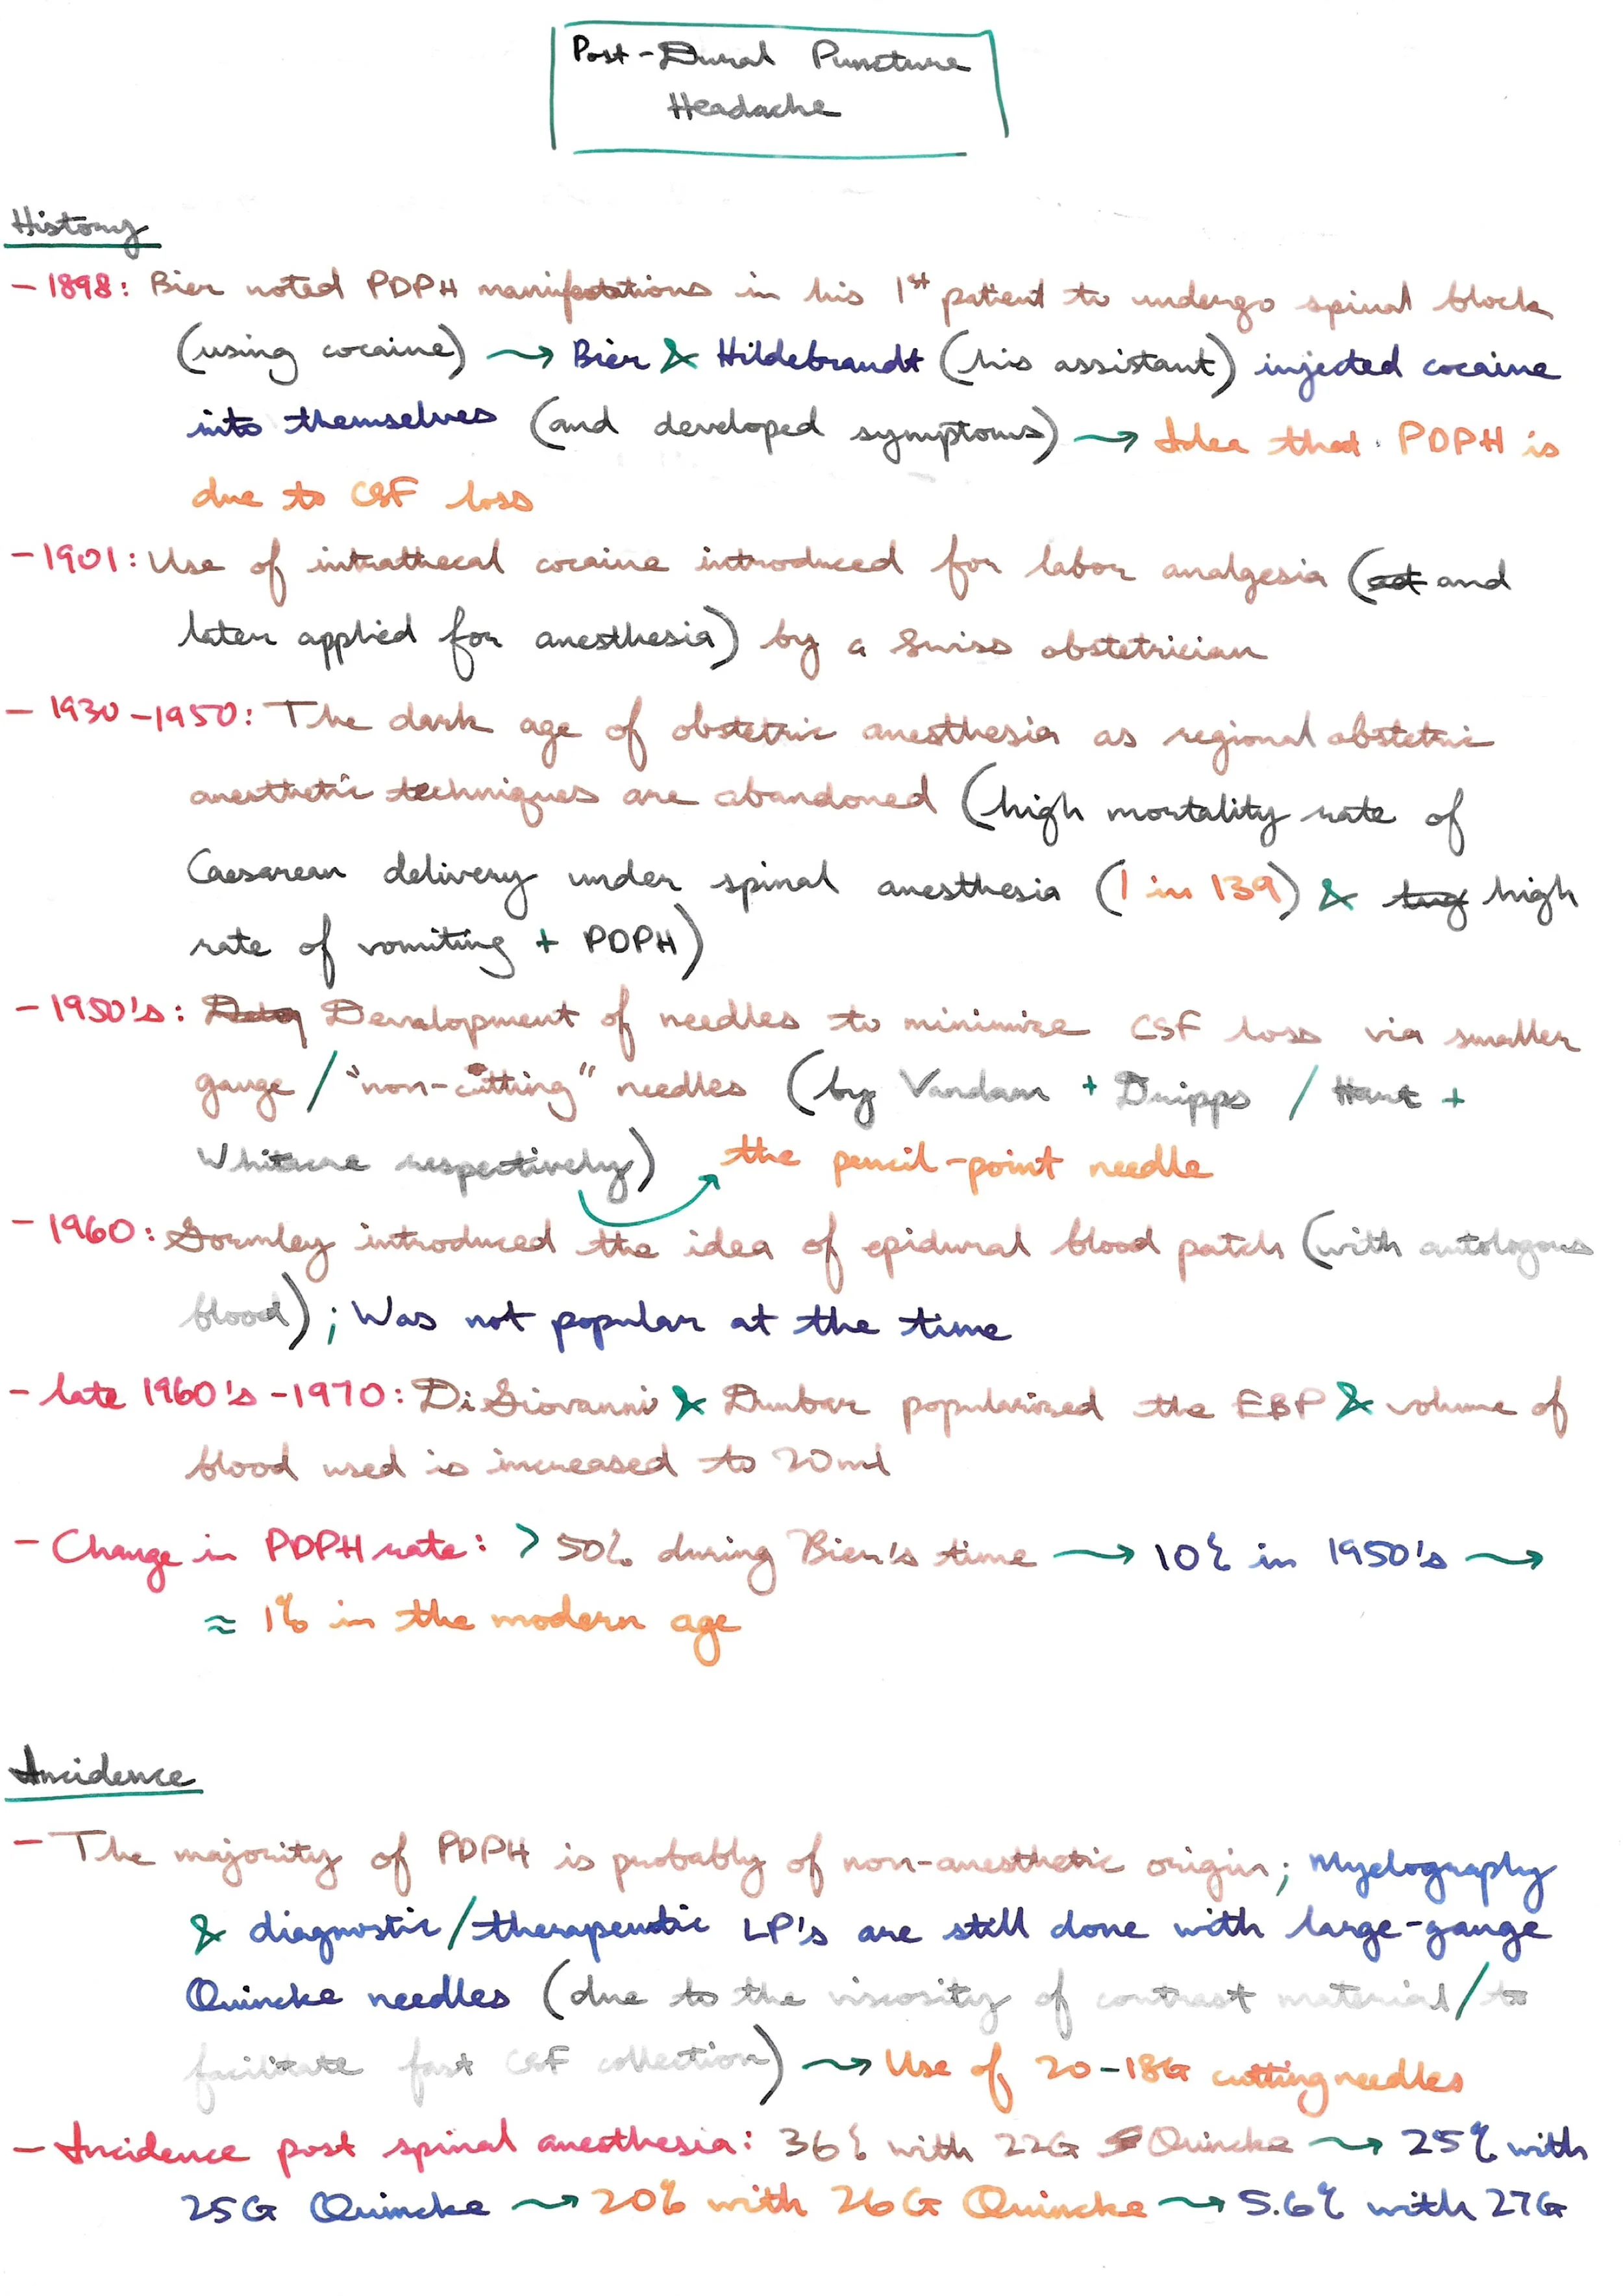 Post-Dural Puncture
Headache
History
- 1898: Bier noted PDPH manifestations in his 1st patient to undergo spinal block
(using cocaine) → Bier & Hildebrandt (his assistant) injected cocaine
into themselves (and developed symptoms) → Idea that PDPH is
due to CSF loss
- 1901: Use of intrathecal cocaine introduced for labor analgesia (and
later applied for anesthesia) by a Swiss obstetrician
- 1930-1950: The dark age of obstetric anesthesia as regional obstetric
anesthetic techniques are abandoned (high mortality rate of
Caesarean delivery under spinal anesthesia (1 in 139) & high
rate of vomiting + PDPH)
- 1950's: Development of needles to minimize CSF loss via smaller
gauge / "non-cutting" needles (by Vandam + Dripps / Hart +
Whitacre respectively) the pencil-point needle
- 1960: Gormley introduced the idea of epidural blood patch (with autologous
blood); Was not popular at the time
- late 1960's - 1970: DiGiovanni & Dunbar popularized the EBP & volume of
blood used is increased to 20ml
- Change in PDPH rate: > 50% during Bier's time → 10% in 1950's →
≈ 1% in the modern age
Incidence
- The majority of PDPH is probably of non-anesthetic origin; Myelography
& diagnostic/therapeutic LP's are still done with large-gauge
Quincke needles (due to the viscosity of contrast material / to
facilitate fast CSF collection) → Use of 20-18G cutting needles
- Incidence post spinal anesthesia: 36% with 22G Quincke → 25% with
25G Quincke → 20% with 26G Quincke → 5.6% with 27G